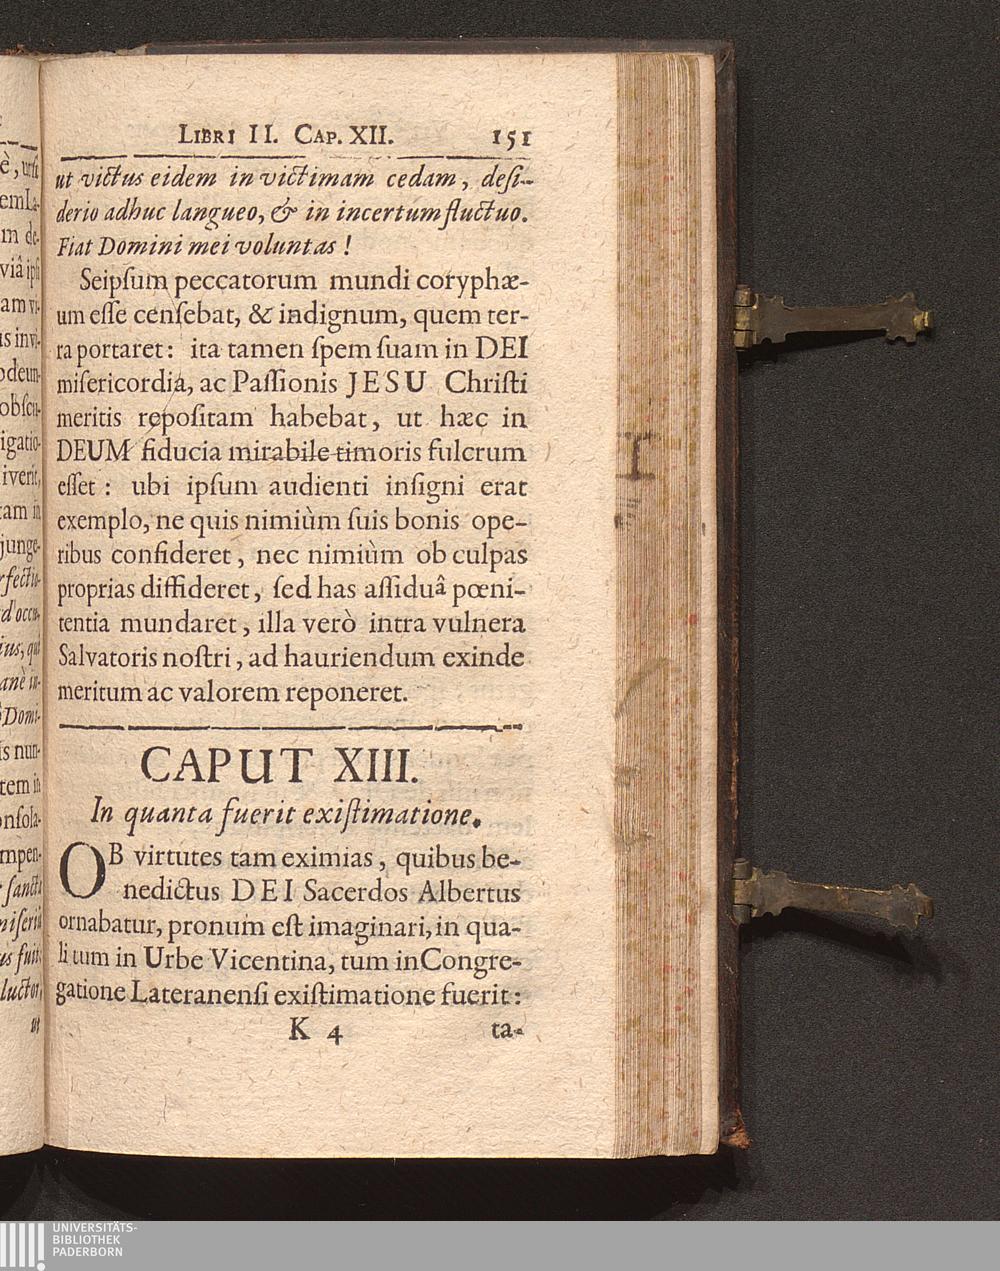 LIBRI II. CAP. XII. 151
ut victus eidem in victimam cedam, deſi-
derio adhuc langueo, & in incertum fluctuo.
Fiat Domini mei voluntas!
Seipſum peccatorum mundi coryphæ-
um eſſe cenſebat, & indignum, quem ter-
ra portaret: ita tamen ſpem ſuam in DEI
miſericordiâ, ac Paſſionis JESU Chriſti
meritis repoſitam habebat, ut hæc in
DEUM fiducia mirabile timoris fulcrum
eſſet: ubi ipſum audienti inſigni erat
exemplo, ne quis nimiùm ſuis bonis ope-
ribus confideret, nec nimiùm ob culpas
proprias diffideret, ſed has aſſiduâ pœni-
tentia mundaret, illa verò intra vulnera
Salvatoris noſtri, ad hauriendum exinde
meritum ac valorem reponeret.
CAPUT XIII.
In quanta fuerit exiſtimatione.
OB virtutes tam eximias, quibus be-
nedictus DEI Sacerdos Albertus
ornabatur, pronum eſt imaginari, in qua-
li tum in Urbe Vicentina, tum in Congre-
gatione Lateranenſi exiſtimatione fuerit:
K 4 ta-
UNIVERSITÄTS-
BIBLIOTHEK
PADERBORN